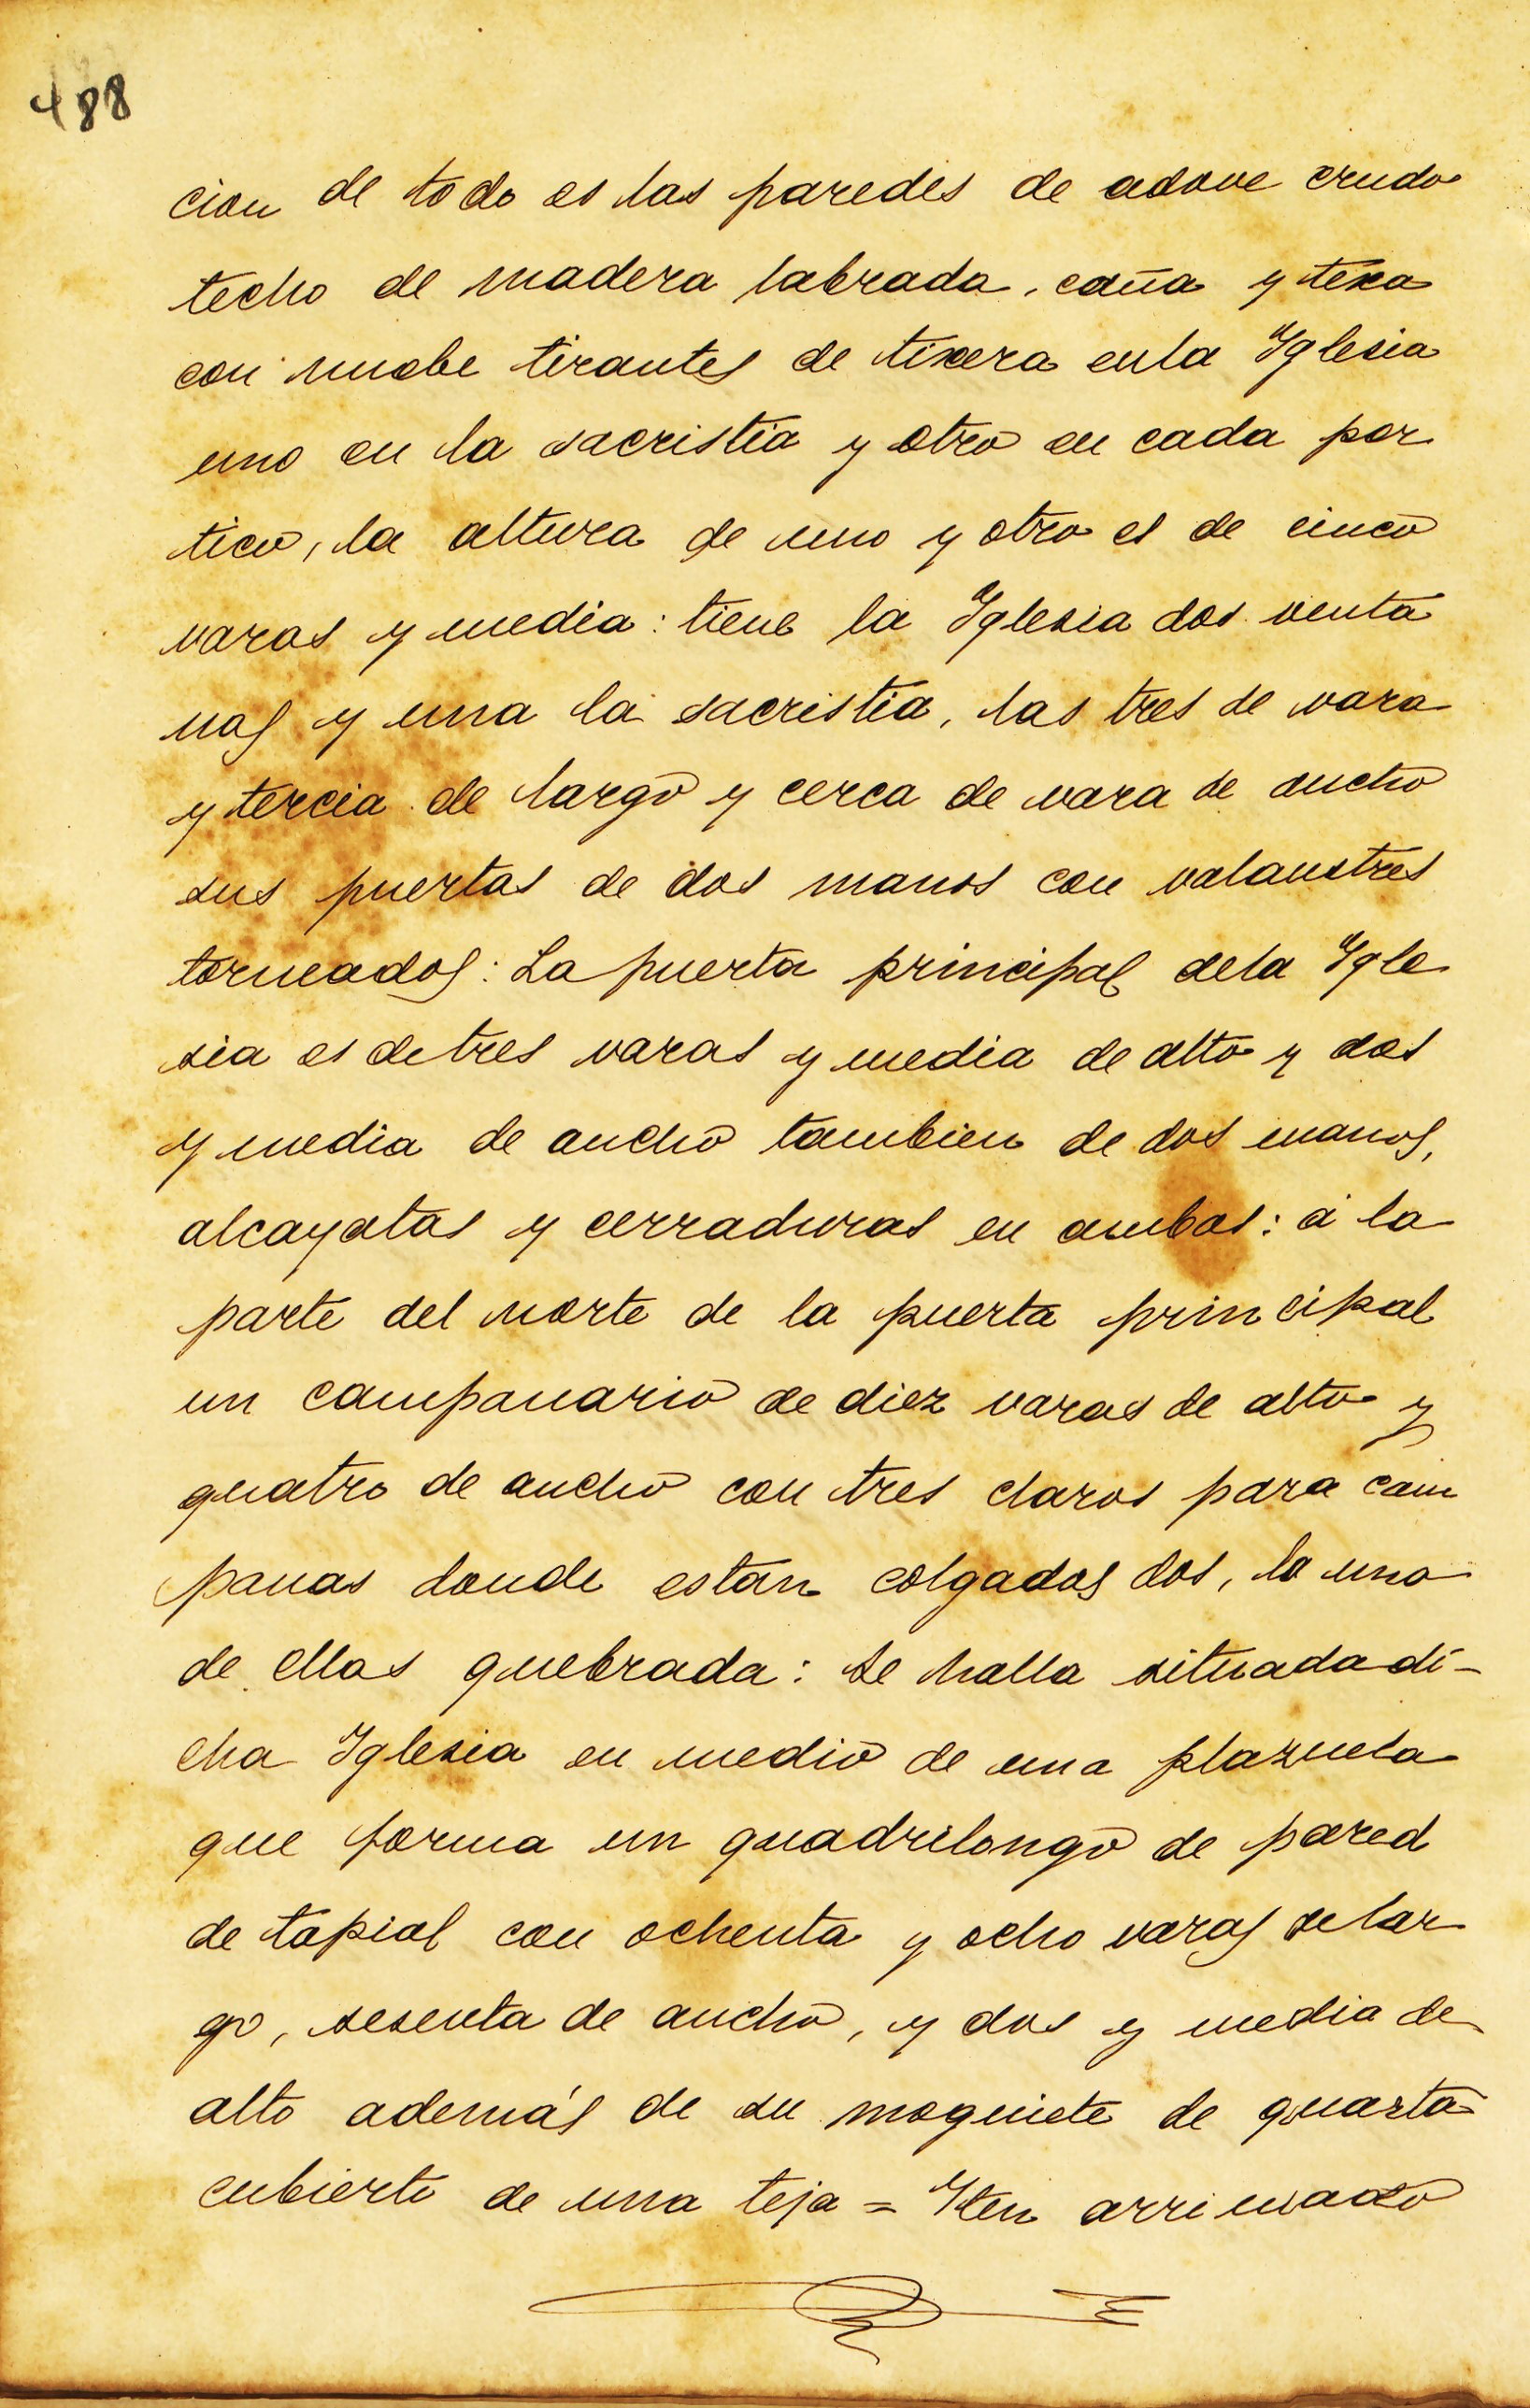 488
cion de todo es las paredes de adove crudo
techo de madera labrada, caña y texa
con nuebe tirantes de tixera enla Yglesia
uno en la sacristia y otro en cada por
tico, la altura de uno y otro es de cinco
varas y media: tiene la Yglesia dos venta
nas y una la sacristia, las tres de vara
y tercia de largo y cerca de vara de ancho
sus puertas de dos manos con valaustres
torneados: La puerta principal dela Ygle
sia es de tres varas y media de alto y dos
y media de ancho tambien de dos manos,
alcayatas y cerraduras en ambas: á la
parte del norte de la puerta principal
un campanario de diez varas de alto y
quatro de ancho con tres claros para cam
panas donde están colgadas dos, la una
de ellas quebrada: se halla situada di-
cha Yglesia en medio de una plazuela
que forma un quadrilongo de pared
de tapial con ochenta y ocho varas de lar
go, sesenta de ancho, y dos y media de
alto además de su moginete de quarta
cubierto de una teja = Yten arrimado